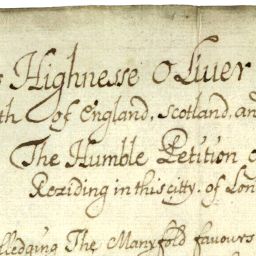 Highnesse Oliver
th of England, Scotland, and
The Humble Petition o
Reziding in this citty, of Lon
lledging The Manyfold favours